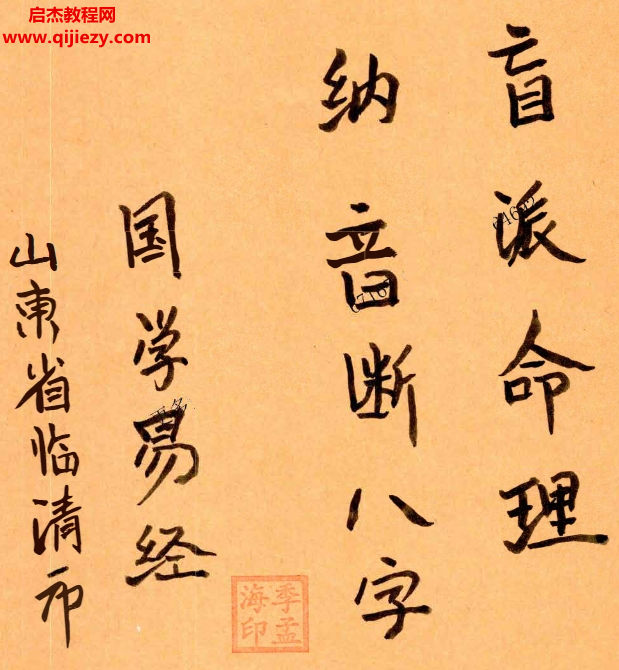 启杰教程网
www.qijiezy.com
盲派命理
纳音断八字
国学易经
山東省临清市
季孟
海印